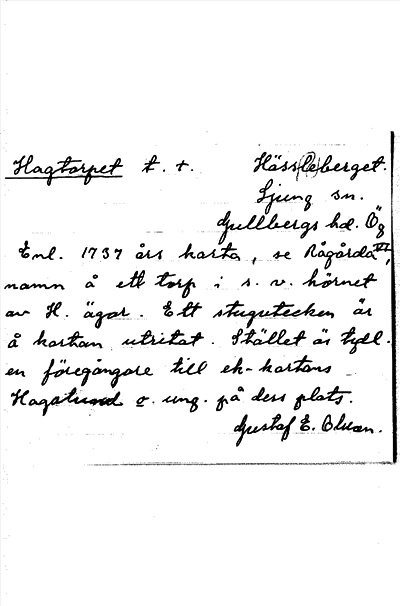 Hagtorpet t. +. Häss(le)berget.
Ljung sn.
Gullbergs hd. Ög
Enl. 1737 års karta, se Rågårda VI,
namn å ett torp i s. v. hörnet
av H. ägor. Ett stugutecken är
å kartan utritat. Stället är tydl.
en föregångare till ek-kartans
Hagalund o. ung. på dess plats.
Gustaf E. Olson.